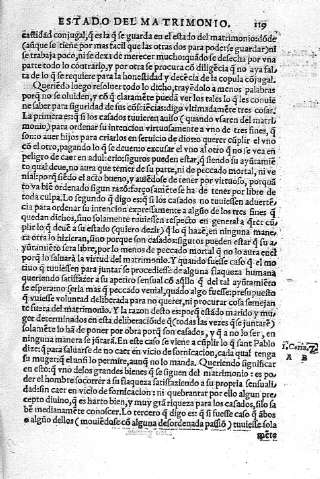 ESTADO DEL MATRIMONIO. 119
castidad conjugal, q̃ es la q̃ se guarda en el estado del matrimonio: dõde
(aũ que se tiene por mas facil que las otras dos para poderse guardar) ni
se trabaja poco, ni se dexa de merecer mucho: quãdo se desecha por vna
parte todo lo contrario, y por otra se procura cõ diligẽcia q̃ no aya fal
ta de lo q̃ se requiere para la honestidad y decẽcia de la copula cõjugal.
Queriẽdo luego resoluer todo lo dicho, trayẽdolo a menos palabras
porq̃ no se oluiden, y cõ q̃ claramẽte pueda ver los tales lo q̃ les conuie
ne saber para seguridad de sus cõsciẽcias: digo vltimadamẽte tres cosas.
La primera es: q̃ si los casados tuuieren auiso (quando vsaren del matri
monio) para ordenar su intencion virtuosamente a vno de tres fines, q̃
son: o auer hijos para criarlos en seruicio de dios: o querer cũplir el vno
cõ el otro, pagando lo q̃ se deue: o excusar el vno al otro q̃ no se vea en
peligro de caer en adulterio: siguros pueden estar, q̃ siendo su ayũtamiẽ
to qual deue, no aura que temer de su parte, ni de peccado mortal, ni ve
nial: porq̃ siẽdo el acto bueno, y auiẽdose de tener por virtuoso, porquã
to va biẽ ordenado sigun razõ: forçosamẽte se ha de tener por libre de
toda culpa. Lo segundo q̃ digo est: q̃ si los casados no tuuiessen aduertẽ-
cia para ordenar su intencion expressamente a algũo de los tres fines q̃
quedan dichos, sino solamente tuuiessen respecto en general a querer cũ
plir lo q̃ deuẽ a su estado (quiero dezir) q̃ lo q̃ hazẽ, en ninguna mane
ra otra lo hizieran, sino porque son casados: siguros pueden estar q̃ su a
yũtamiẽto sera libre, por lo menos de peccado mortal
porq̃ lo saluarà la virtud del matrimonio. Y quando fuesse caso q̃ el mo
tiuo q̃ tuuiessen para juntarse procediesse de alguna flaqueza humana
queriendo satisfazer a su apetito sensual
te esperamos seria mas q̃ peccado venial, quãdo algo fuesse: presupuesto
q̃ vuiesse voluntad deliberada para no querer, ni procurar cosa semejan
te fuera del matrimonio. Y la razon desto es: porq̃ estãdo marido y mu-
ger determinados en esta deliberaciõ de q̃ (todas las vezes q̃ se juntarẽ)
solamẽte lo hã de poner por obra porq̃ son casados, y q̃ a no lo ser, en
ninguna manera se jũtarã. En este caso se viene a cũplir lo q̃ sant Pablo
dize: q̃ para saluarse de no caer en vicio de fornicacion, cada qual tenga
su muger: q̃ el aũ lo permite, aunq̃ no lo manda. Queriendo significar
en esto: q̃ vno delos grandes bienes q̃ se siguen del matrimonio: es po-
der el hombre socorrer a su flaqueza satisfaziendo a su propria sensuali
dad sin caer en vicio de fornicacion: ni quebrantar por ello algun pre-
cepto diuino, q̃ es harto bien, y muy grã riqueza para los casados, si lo sa
bẽ medianamẽte conoscer. Lo tercero q̃ digo es: q̃ si fuesse caso q̃ ãbos
o algũo dellos (mouiẽdose cõ alguna desordenada passiõ) tuuiesse sola
mẽte
1. Corin. 7.
A B